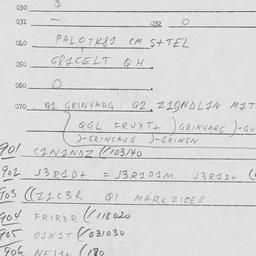 030 $
031 — 032 0
040 PALOTK81 CM S+TEL
050 G81CELT QH
060 0
070 Q1 GRINVARG Q2 Z10NDL1N
QGL FRUXT+ )GRINVARG)-GU
)-GRINCAJG )-GRINSN
901 C1N1NDZ (/103140
902 J3R1D+ = J3R1D1M J3R1D+
903 ((Z1C3R Q1 MARKZICER
904 FRIR3R (/118020
905 OJX1T (/031030
906 NE11N (/180